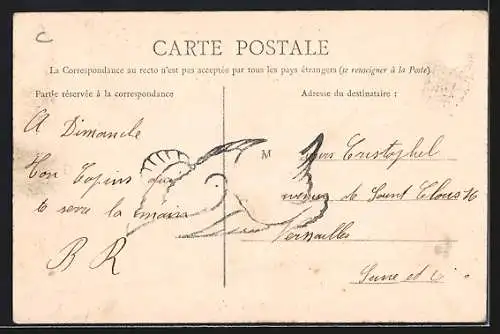 C
CARTE POSTALE
La Correspondance au recto n'est pas acceptée par tous les pays étrangers (se renseigner à la Poste)
Partie réservée à la correspondance
Adresse du destinataire :
A Dimanche
Ton Copins qui
te serre la main
B R
M
Cristophel
avenue de Saint Cloud 16
Versailles
Seine et